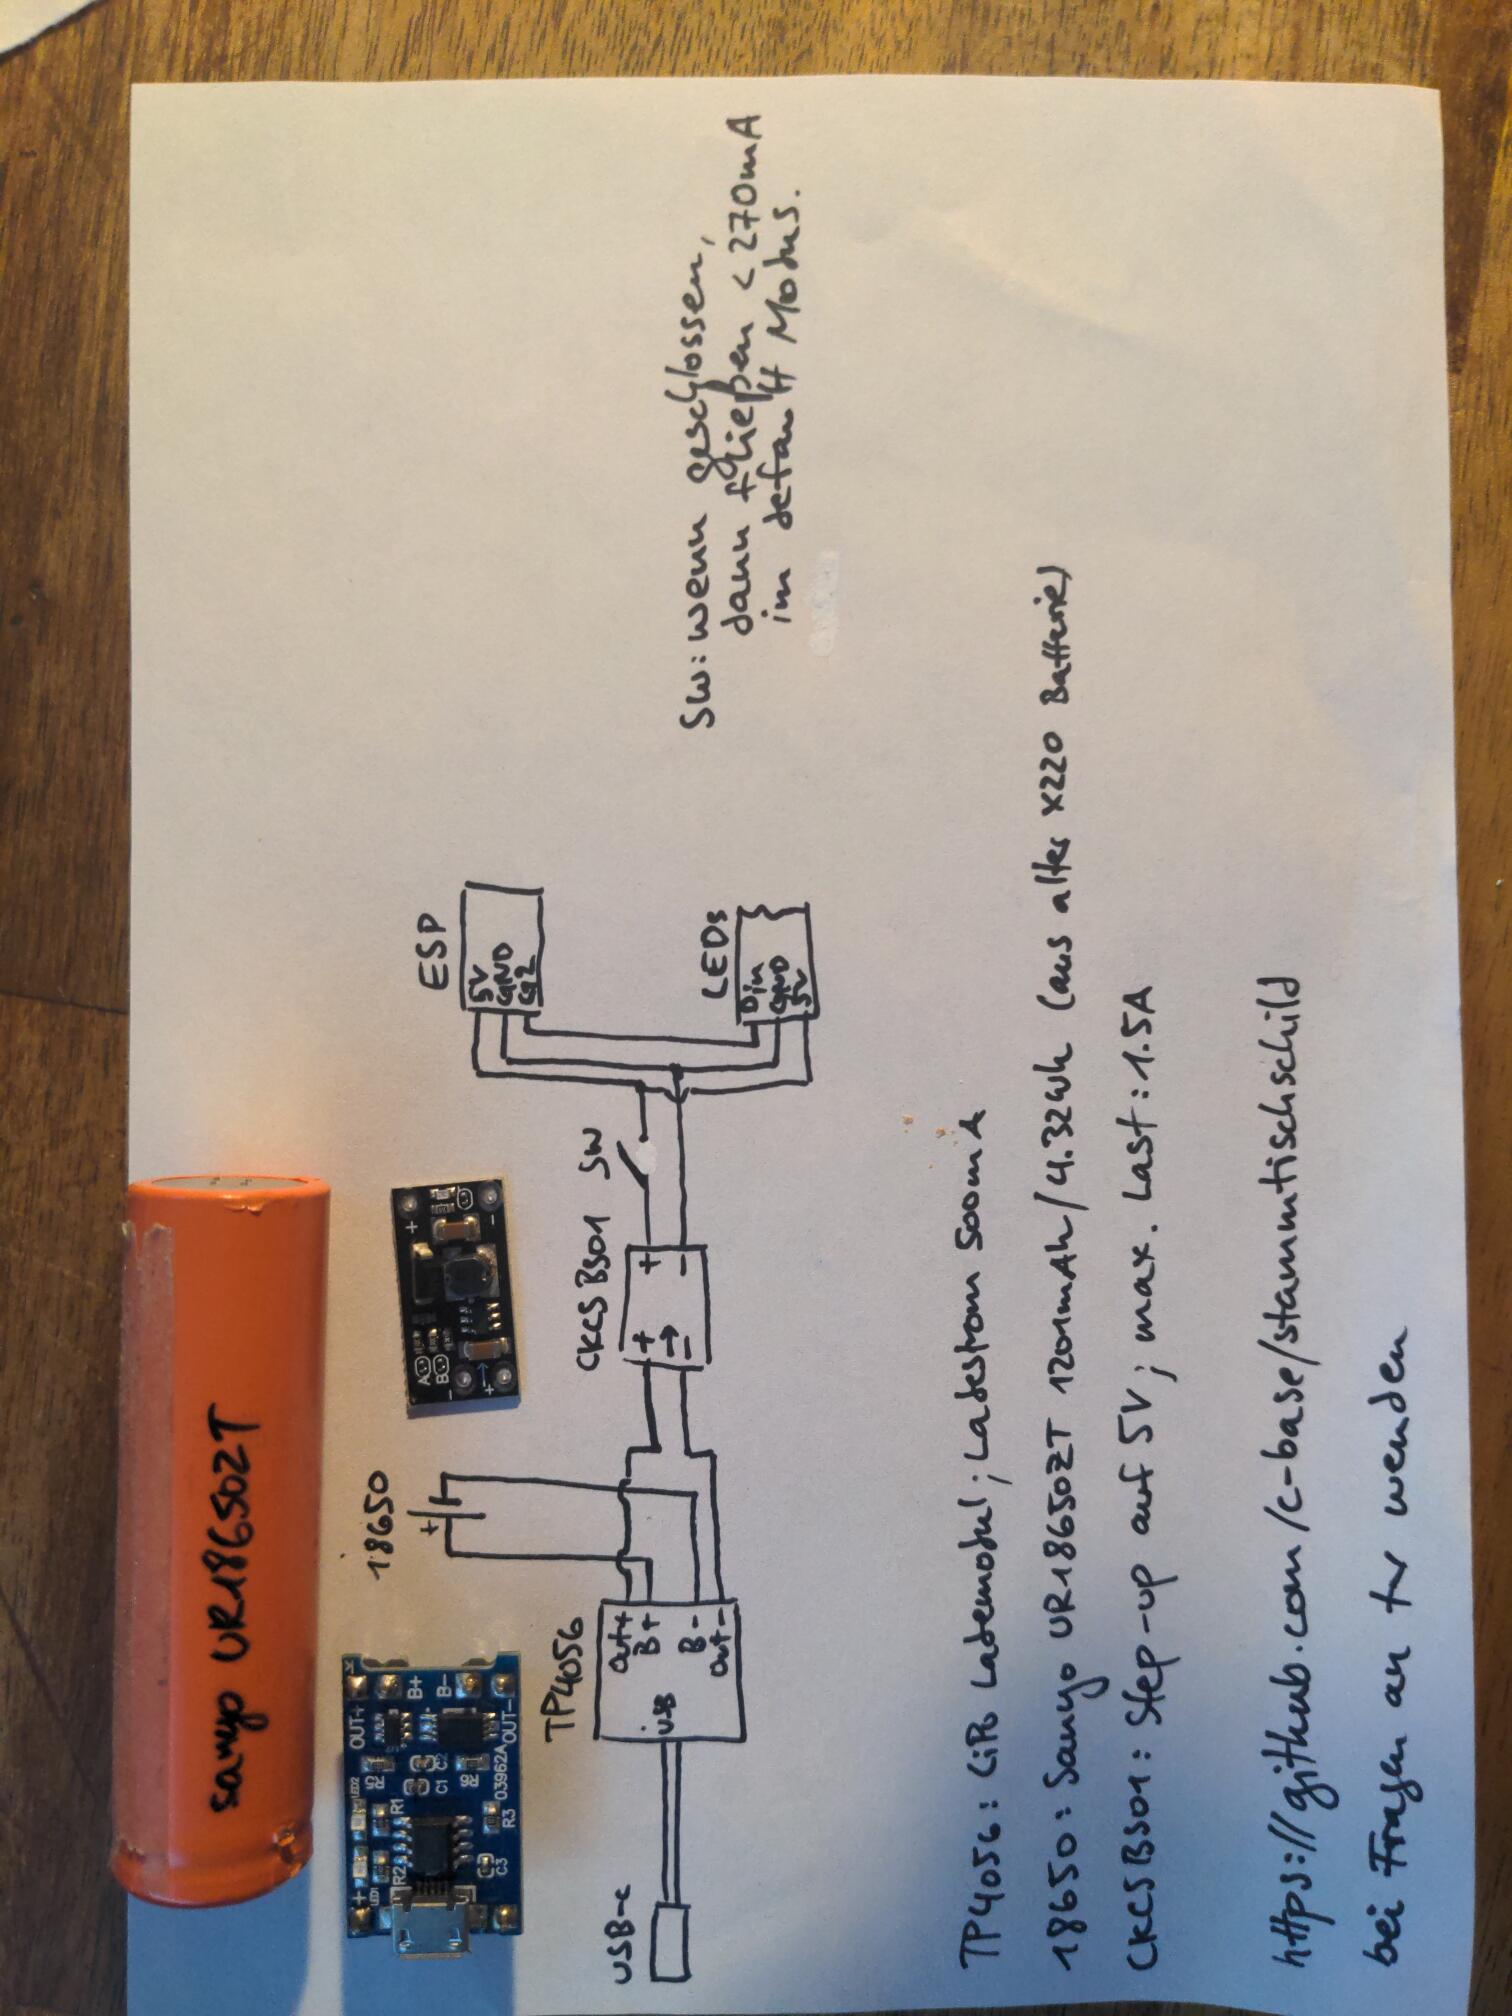 sanyo UR18650ZT
+
LED1
LED2
R2
R1
R5
OUT+
K
B+
B-
C1
R6
C3
R3
03962A
OUT-
18650
+
A
B
-
+
+
-
ESP
5V
GND
G2
TP4056
USB-C
USB
Out+
B+
B-
Out-
CKCSBS01
+
→
-
+
-
SW
LEDs
Din
GND
5V
SW: wenn geschlossen,
dann fließen <270mA
im default Modus.
TP4056: LiPo Lademodul; Ladestrom 500mA
18650: Sanyo UR18650ZT 1201mAh/4.32Wh (aus alter X220 Batterie)
CKCSBS01: Step-up auf 5V; max. Last: 1.5A
https://github.com/c-base/stammtischschild
bei Fragen an wenden